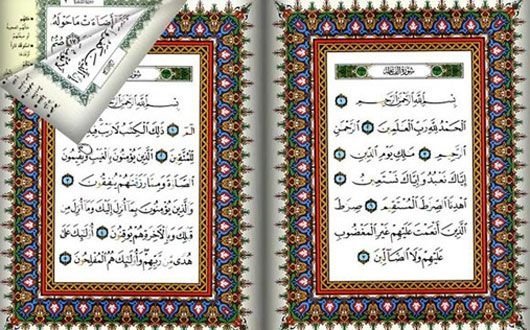 سُورَةُ الفَاتِحَة
بِسْمِ ٱللَّهِ ٱلرَّحْمَٰنِ ٱلرَّحِيمِ ١
ٱلْحَمْدُ لِلَّهِ رَبِّ ٱلْعَٰلَمِينَ ٢ ٱلرَّحْمَٰنِ
ٱلرَّحِيمِ ٣ مَٰلِكِ يَوْمِ ٱلدِّينِ ٤
إِيَّاكَ نَعْبُدُ وَإِيَّاكَ نَسْتَعِينُ ٥
ٱهْدِنَا ٱلصِّرَٰطَ ٱلْمُسْتَقِيمَ ٦ صِرَٰطَ
ٱلَّذِينَ أَنْعَمْتَ عَلَيْهِمْ غَيْرِ ٱلْمَغْضُوبِ
عَلَيْهِمْ وَلَا ٱلضَّآلِّينَ ٧
أَضَاءَتْ مَا حَوْلَهُ
بِسْمِ ٱللَّهِ ٱلرَّحْمَٰنِ ٱلرَّحِيمِ
الٓمٓ ١ ذَٰلِكَ ٱلْكِتَٰبُ لَا رَيْبَ فِيهِ
لِّلْمُتَّقِينَ ٢ ٱلَّذِينَ يُؤْمِنُونَ بِٱلْغَيْبِ وَيُقِيمُونَ
ٱلصَّلَوٰةَ وَمِمَّا رَزَقْنَٰهُمْ يُنفِقُونَ ٣
وَٱلَّذِينَ يُؤْمِنُونَ بِمَآ أُنزِلَ إِلَيْكَ وَمَآ أُنزِلَ مِن
قَبْلِكَ وَبِٱلْءَاخِرَةِ هُمْ يُوقِنُونَ ٤ أُو۟لَٰٓئِكَ عَلَىٰ
هُدًى مِّن رَّبِّهِمْ وَأُو۟لَٰٓئِكَ هُمُ ٱلْمُفْلِحُونَ ٥